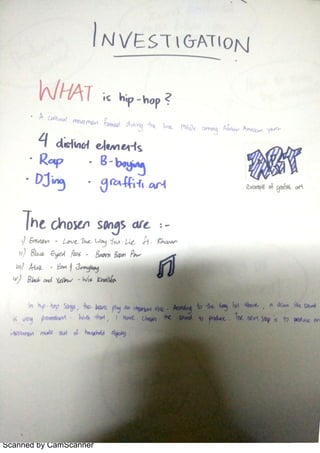 INVESTIGATION
WHAT is hip-hop?
• A cultural movement formed during the late 1960s among African American youth
4 distinct elements
• Rap • B-boying
• DJing • graffiti art
Example of graffiti art
The chosen songs are :-
i) Eminem - Love The Way You Lie ft. Rihanna
ii) Black Eyed Peas - Boom Boom Pow
iii)
iv) Black and Yellow - Wiz Khalifa
In hip-hop songs, the beats play an important role. According to the song list above, a drum like sound
is very prominent. With that, I have chosen the sound to produce. The next step is to produce an
instrument made out of household objects.
Scanned by CamScanner